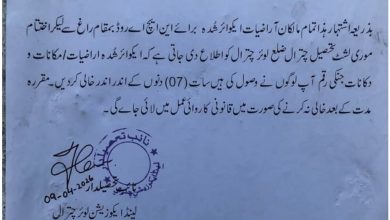 بذریعہ اشتہار ہذا تمام مالکان آراضیات ایکوائر شدہ برائے این ایچ اے روڈ بمقام راغ سے لیکر اختتام
موری لشٹ تحصیل چترال ضلع لوئر چترال کو اطلاع دی جاتی ہے کہ ایکوائر شدہ اراضیات / مکانات و
دکانات جنکی رقم آپ لوگوں نے وصول کی ہیں سات (07) دنوں کے اندر اندر خالی کردیں۔ مقررہ
مدت کے بعد خالی نہ کرنے کی صورت میں قانونی کاروائی عمل میں لائی جائے گی۔
نائب تحصیلدار
09-04-2026
لینڈ ایکوزیشن لوئر چترال